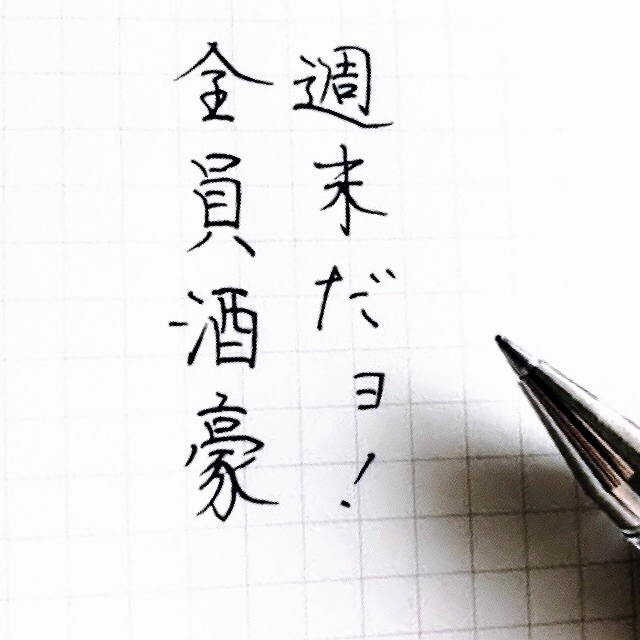 週末だョ！
全員酒豪